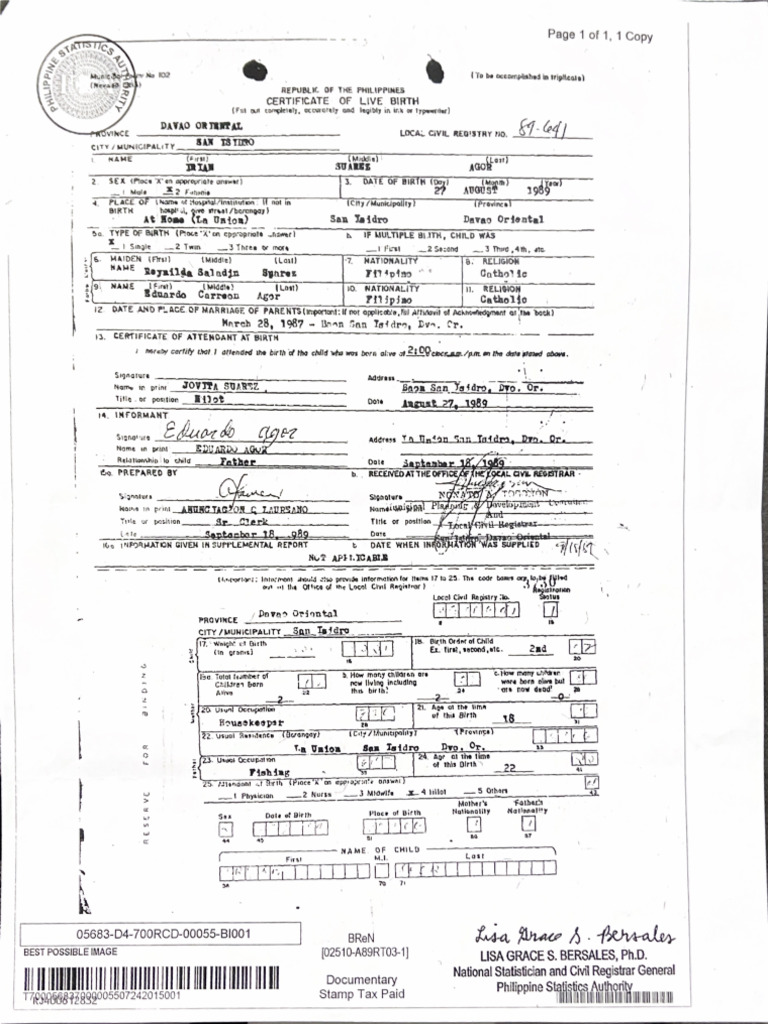 Page 1 of 1, 1 Copy
PHILIPPINE STATISTICS AUTHORITY
Municipal Form No 102
(To be accomplished in triplicate)
REPUBLIC OF THE PHILIPPINES
CERTIFICATE OF LIVE BIRTH
(Fill out completely, accurately and legibly in ink or typewriter)
PROVINCE DAVAO ORIENTAL
LOCAL CIVIL REGISTRY NO. 89-641
CITY / MUNICIPALITY SAN ISIDRO
1. NAME (First) (Middle) (Last)
SUAREZ AGOR
2. SEX (Place 'X' on appropriate answer) 3. DATE OF BIRTH (Day) (Month) (Year)
1 Male X 2 Female 27 AUGUST 1989
4. PLACE OF (Name of Hospital/Institution: If not in (City/Municipality) (Province)
BIRTH hospital, give street/barangay)
At Home (La Union) San Isidro Davao Oriental
5a. TYPE OF BIRTH (Place 'X' on appropriate answer) b. IF MULTIPLE BIRTH, CHILD WAS
X 1 Single 2 Twin 3 Three or more 1 First 2 Second 3 Third, 4th, etc.
6. MAIDEN (First) (Middle) (Last) 7. NATIONALITY 8. RELIGION
NAME Reynilda Saladin Suarez Filipino Catholic
9. NAME (First) (Middle) (Last) 10. NATIONALITY 11. RELIGION
Eduardo Carreon Agor Filipino Catholic
12. DATE AND PLACE OF MARRIAGE OF PARENTS (Important: If not applicable, fill Affidavit of Acknowledgment at the back)
March 28, 1987 - San Isidro, Dvo. Or.
13. CERTIFICATE OF ATTENDANT AT BIRTH
I hereby certify that I attended the birth of the child who was born alive at 2:00 o'clock a.m./p.m. on the date stated above.
Signature
Address
Name in print JOVITA SUAREZ
San Isidro, Dvo. Or.
Title or position Hilot
Date August 27, 1989
14. INFORMANT
Signature Eduardo Agor
Address La Union San Isidro, Dvo. Or.
Name in print EDUARDO AGOR
Relationship to child Father
Date September 18, 1989
15a. PREPARED BY b. RECEIVED AT THE OFFICE OF THE LOCAL CIVIL REGISTRAR
Signature
Signature
Name in print
Name Municipal Planning & Development
Title or position Sr. Clerk
And
Title or position Local Civil Registrar
September 18, 1989
San Isidro, Davao Oriental
16a INFORMATION GIVEN IN SUPPLEMENTAL REPORT DATE WHEN INFORMATION WAS SUPPLIED
NOT APPLICABLE
(Important: Informant should also provide information for Items 17 to 25. The code boxes are to be filled
out at the Office of the Local Civil Registrar)
Registration
Status
Local Civil Registry No.
PROVINCE Davao Oriental
CITY / MUNICIPALITY San Isidro
17. Weight of Birth
(in grams)
18. Birth Order of Child
Ex. first, second, etc. 2nd
19a. Total Number of
Children Born
Alive 2
b. How many children are
now living including
this birth? 2
c. How many children
were born alive but
are now dead? 0
20. Usual Occupation
Housekeeper
21. Age at the time
of this Birth 18
22. Usual Residence (Barangay) (City/Municipality) (Province)
La Union San Isidro Dvo. Or.
23. Usual Occupation
Fishing
24. Age at the time
of this Birth 22
25. Attendant at Birth (Place 'X' on appropriate answer)
1 Physician 2 Nurse 3 Midwife X 4 Hilot 5 Others
RESERVE FOR BINDING
Sex Date of Birth Place of Birth Mother's Nationality Father's Nationality
NAME OF CHILD
First M.I. Last
05683-D4-700RCD-00055-BI001
BEST POSSIBLE IMAGE
BReN
[02510-A89RT03-1]
Documentary
Stamp Tax Paid
Lisa Grace S. Bersales
LISA GRACE S. BERSALES, Ph.D.
National Statistician and Civil Registrar General
Philippine Statistics Authority